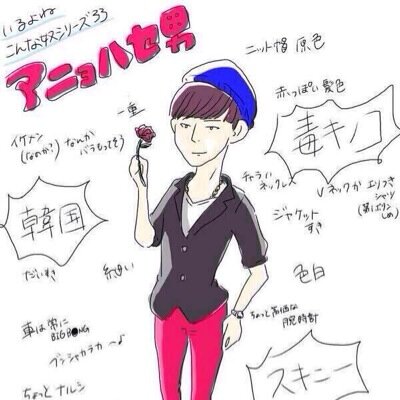 いるよね
こんな奴シリーズ33
アニョハセ男
ニット帽 原色
赤っぽい髪色
毒キノコ
一重
イケメン
(なのか?)
なんか
バラもってそう
チャラい
ネックレス
Vネックか
エリつき
シャツ
(第1ボタン
しめ)
韓国
だいすき
ジャケット
すき
細い
色白
車は常に
BIGBANG
ブンシャカラカ〜♪
ちょっと高価な
腕時計
ちょっと ナルシ
スキニー